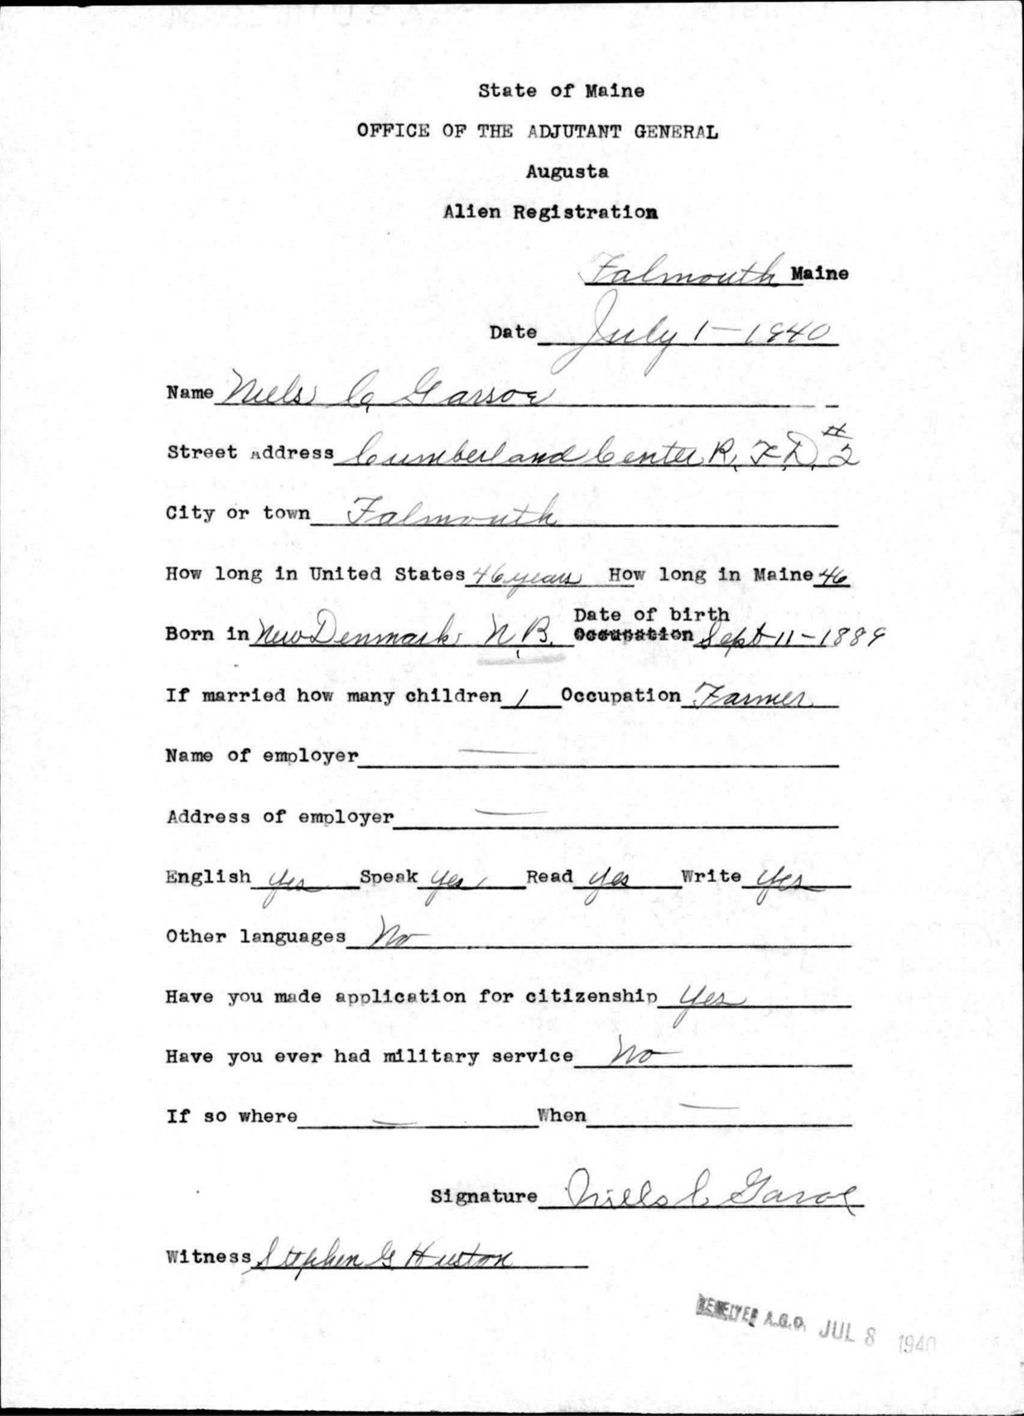 State of Maine
OFFICE OF THE ADJUTANT GENERAL
Augusta
Alien Registration
Falmouth Maine
Date July 1-1940
Name Niels C. Garsoe
Street Address Cumberland Center R.F.D. #2
City or town Falmouth
How long in United States 46 years How long in Maine 46
Date of birth
Born in New Denmark N.B. Occupation Sept-11-1889
If married how many children 1 Occupation Farmer.
Name of employer —
Address of employer —
English Yes Speak Yes Read Yes Write Yes
Other languages No
Have you made application for citizenship Yes
Have you ever had military service No
If so where — When —
Signature Niells C Garsoe
Witness Stephen G Huston
RECEIVED A.G.O. JUL 8 1940